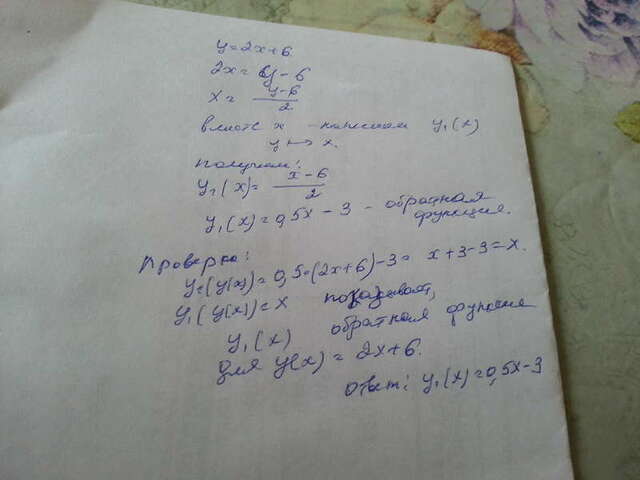 y=2x+6
2x=y-6
x= y-6/2
вместо x - напишем y₁(x)
y ↦ x.
получим:
y₁(x)= x-6/2
y₁(x)=0,5x-3 - обратная функция.
Проверка:
y₁(y(x))=0,5·(2x+6)-3= x+3-3=x.
y₁(y(x))=x показывает,
y₁(x) обратная функция
для y(x)=2x+6.
ответ: y₁(x)=0,5x-3